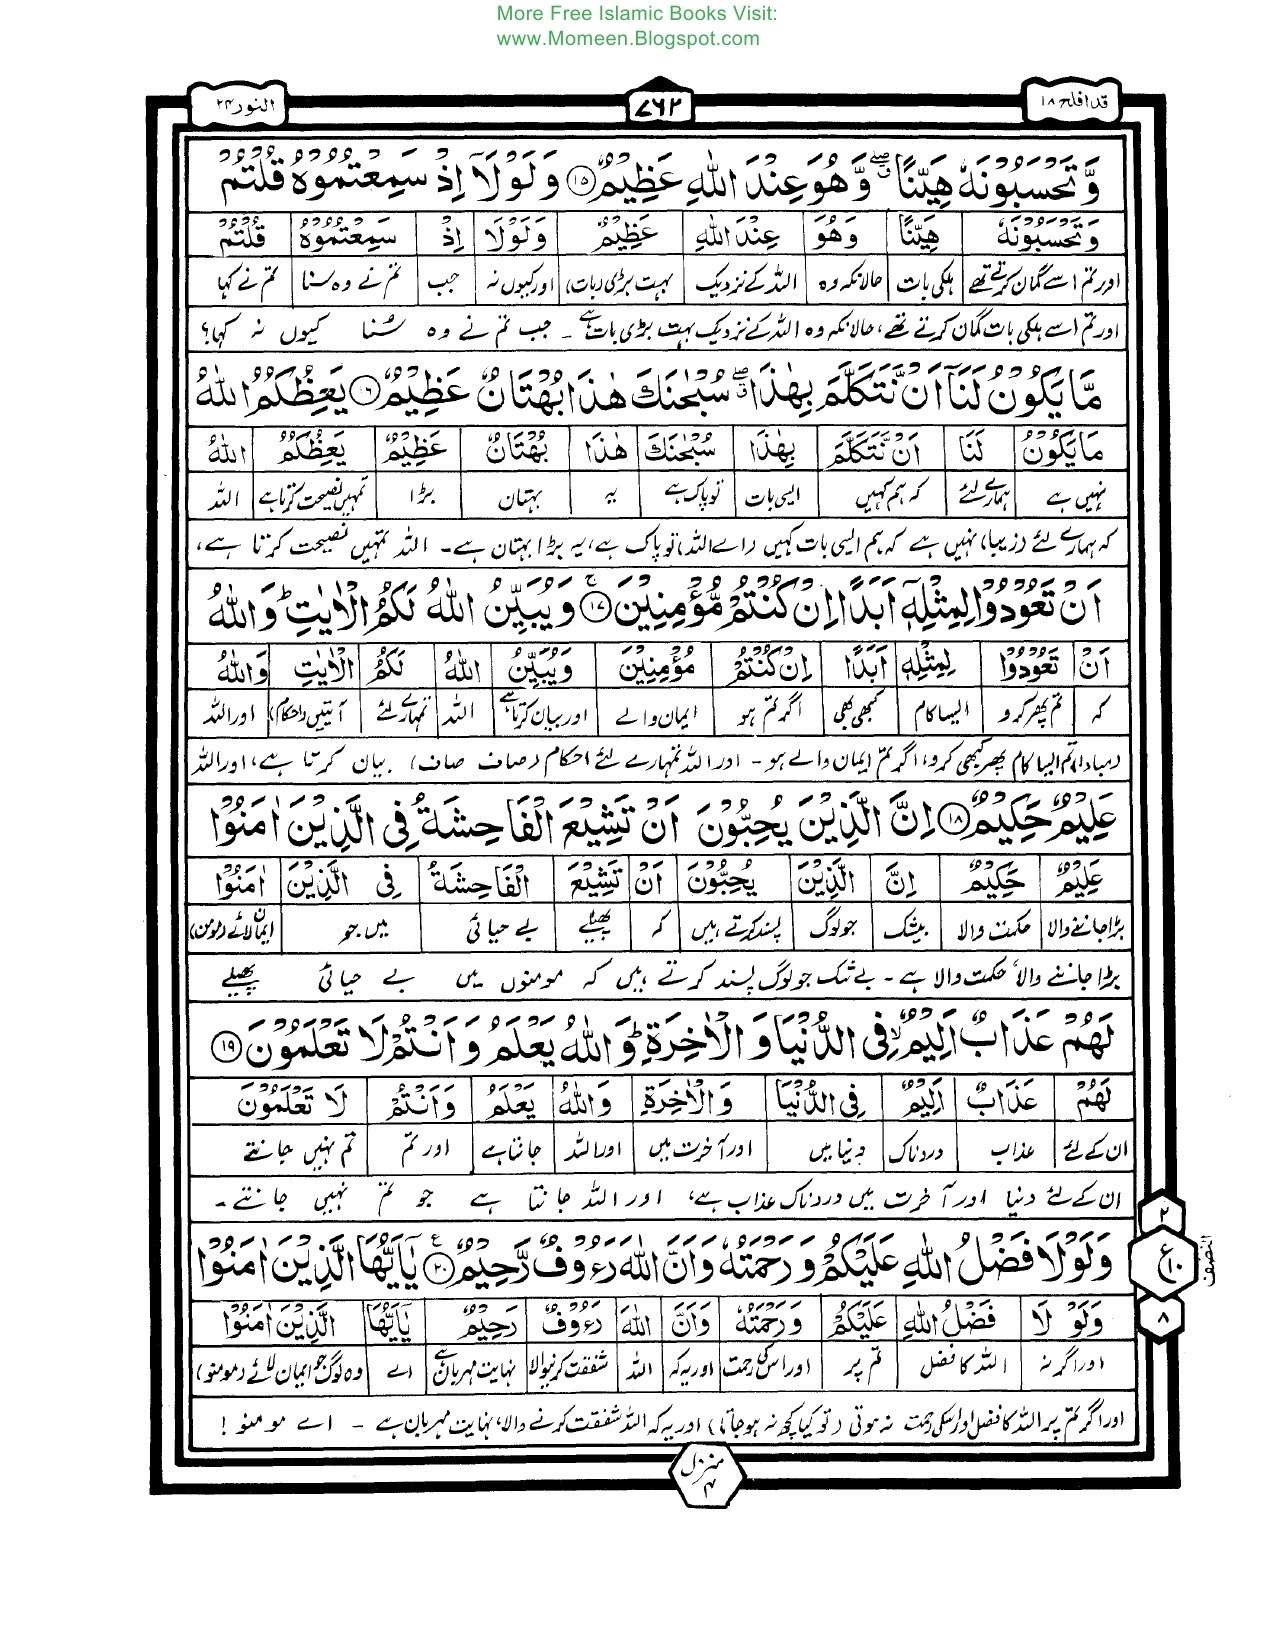 More Free Islamic Books Visit:
www.Momeen.Blogspot.com
قد افلح ۱۸
۷۶۲
النور ۲۴
وَّتَحْسَبُوْنَهٗ هَيِّنًا ۖ وَّهُوَ عِنْدَ اللّٰهِ عَظِيْمٌ ۝۱۵ وَلَوْلَآ اِذْ سَمِعْتُمُوْهُ قُلْتُمْ
وَتَحْسَبُوْنَهٗ هَيِّنًا وَهُوَ عِنْدَ اللّٰهِ عَظِيْمٌ وَلَوْلَا اِذْ سَمِعْتُمُوْهُ قُلْتُمْ
اور تم اسے گمان کرتے تھے ہلکی بات حالانکہ وہ اللہ کے نزدیک بہت بڑی (بات) اور کیوں نہ جب تم نے وہ سنا تم نے کہا
اور تم اسے ہلکی بات گمان کرتے تھے، حالانکہ وہ اللہ کے نزدیک بہت بڑی بات ہے ۔ جب تم نے وہ سُنا کیوں نہ کہا؟
مَّا يَكُوْنُ لَنَآ اَنْ نَّتَكَلَّمَ بِهٰذَا ۖ سُبْحٰنَكَ هٰذَا بُهْتَانٌ عَظِيْمٌ ۝۱۶ يَعِظُكُمُ اللّٰهُ
مَا يَكُوْنُ لَنَا اَنْ نَّتَكَلَّمَ بِهٰذَا سُبْحٰنَكَ هٰذَا بُهْتَانٌ عَظِيْمٌ يَعِظُكُمُ اللّٰهُ
نہیں ہے ہمارے لئے کہ ہم کہیں ایسی بات تو پاک ہے یہ بہتان بڑا تمہیں نصیحت کرتا ہے اللہ
کہ ہمارے لئے (زیبا) نہیں ہے کہ ہم ایسی بات کہیں (اے اللہ) تو پاک ہے، یہ بڑا بہتان ہے۔ اللہ تمہیں نصیحت کرتا ہے،
اَنْ تَعُوْدُوْا لِمِثْلِهٖٓ اَبَدًا اِنْ كُنْتُمْ مُّؤْمِنِيْنَ ۝۱۷ وَيُبَيِّنُ اللّٰهُ لَكُمُ الْاٰيٰتِ ؕ وَاللّٰهُ
اَنْ تَعُوْدُوْا لِمِثْلِهٖ اَبَدًا اِنْ كُنْتُمْ مُؤْمِنِيْنَ وَيُبَيِّنُ اللّٰهُ لَكُمُ الْاٰيٰتِ وَاللّٰهُ
کہ تم پھر کرو ایسا کام کبھی بھی اگر تم ہو ایمان والے اور بیان کرتا ہے اللہ تمہارے لئے آیتیں (احکام) اور اللہ
(مبادا) تم ایسا کام پھر کبھی کرو، اگر تم ایمان والے ہو ۔ اور اللہ تمہارے لئے احکام (صاف صاف) بیان کرتا ہے، اور اللہ
عَلِيْمٌ حَكِيْمٌ ۝۱۸ اِنَّ الَّذِيْنَ يُحِبُّوْنَ اَنْ تَشِيْعَ الْفَاحِشَةُ فِي الَّذِيْنَ اٰمَنُوْا
عَلِيْمٌ حَكِيْمٌ اِنَّ الَّذِيْنَ يُحِبُّوْنَ اَنْ تَشِيْعَ الْفَاحِشَةُ فِي الَّذِيْنَ اٰمَنُوْا
بڑا جاننے والا حکمت والا بیشک جو لوگ پسند کرتے ہیں کہ پھیلے بے حیائی میں جو ایمان لائے (مومن)
بڑا جاننے والا، حکمت والا ہے ۔ بے شک جو لوگ پسند کرتے ہیں کہ مومنوں میں بے حیائی پھیلے
لَهُمْ عَذَابٌ اَلِيْمٌ ۙ فِي الدُّنْيَا وَالْاٰخِرَةِ ؕ وَاللّٰهُ يَعْلَمُ وَاَنْتُمْ لَا تَعْلَمُوْنَ ۝۱۹
لَهُمْ عَذَابٌ اَلِيْمٌ فِي الدُّنْيَا وَالْاٰخِرَةِ وَاللّٰهُ يَعْلَمُ وَاَنْتُمْ لَا تَعْلَمُوْنَ
ان کے لئے عذاب دردناک دنیا میں اور آخرت میں اور اللہ جانتا ہے اور تم تم نہیں جانتے
ان کے لئے دنیا اور آخرت میں دردناک عذاب ہے، اور اللہ جانتا ہے جو تم نہیں جانتے ۔
وَلَوْلَا فَضْلُ اللّٰهِ عَلَيْكُمْ وَرَحْمَتُهٗ وَاَنَّ اللّٰهَ رَءُوْفٌ رَّحِيْمٌ ۝۲۰ ع يٰٓاَيُّهَا الَّذِيْنَ اٰمَنُوْا
وَلَوْ لَا فَضْلُ اللّٰهِ عَلَيْكُمْ وَرَحْمَتُهٗ وَاَنَّ اللّٰهَ رَءُوْفٌ رَحِيْمٌ يٰٓاَيُّهَا الَّذِيْنَ اٰمَنُوْا
اور اگر نہ اللہ کا فضل تم پر اور اس کی رحمت اور یہ کہ اللہ شفقت کرنیوالا نہایت مہربان ہے اے وہ لوگ جو ایمان لائے (مومنو)
اور اگر تم پر اللہ کا فضل اور اسکی رحمت نہ ہوتی (تو کیا کچھ نہ ہو جاتا) اور یہ کہ اللہ شفقت کرنے والا، نہایت مہربان ہے ۔ اے مومنو !
۲
ع ۱۰
۸
النصف
منزل ۴